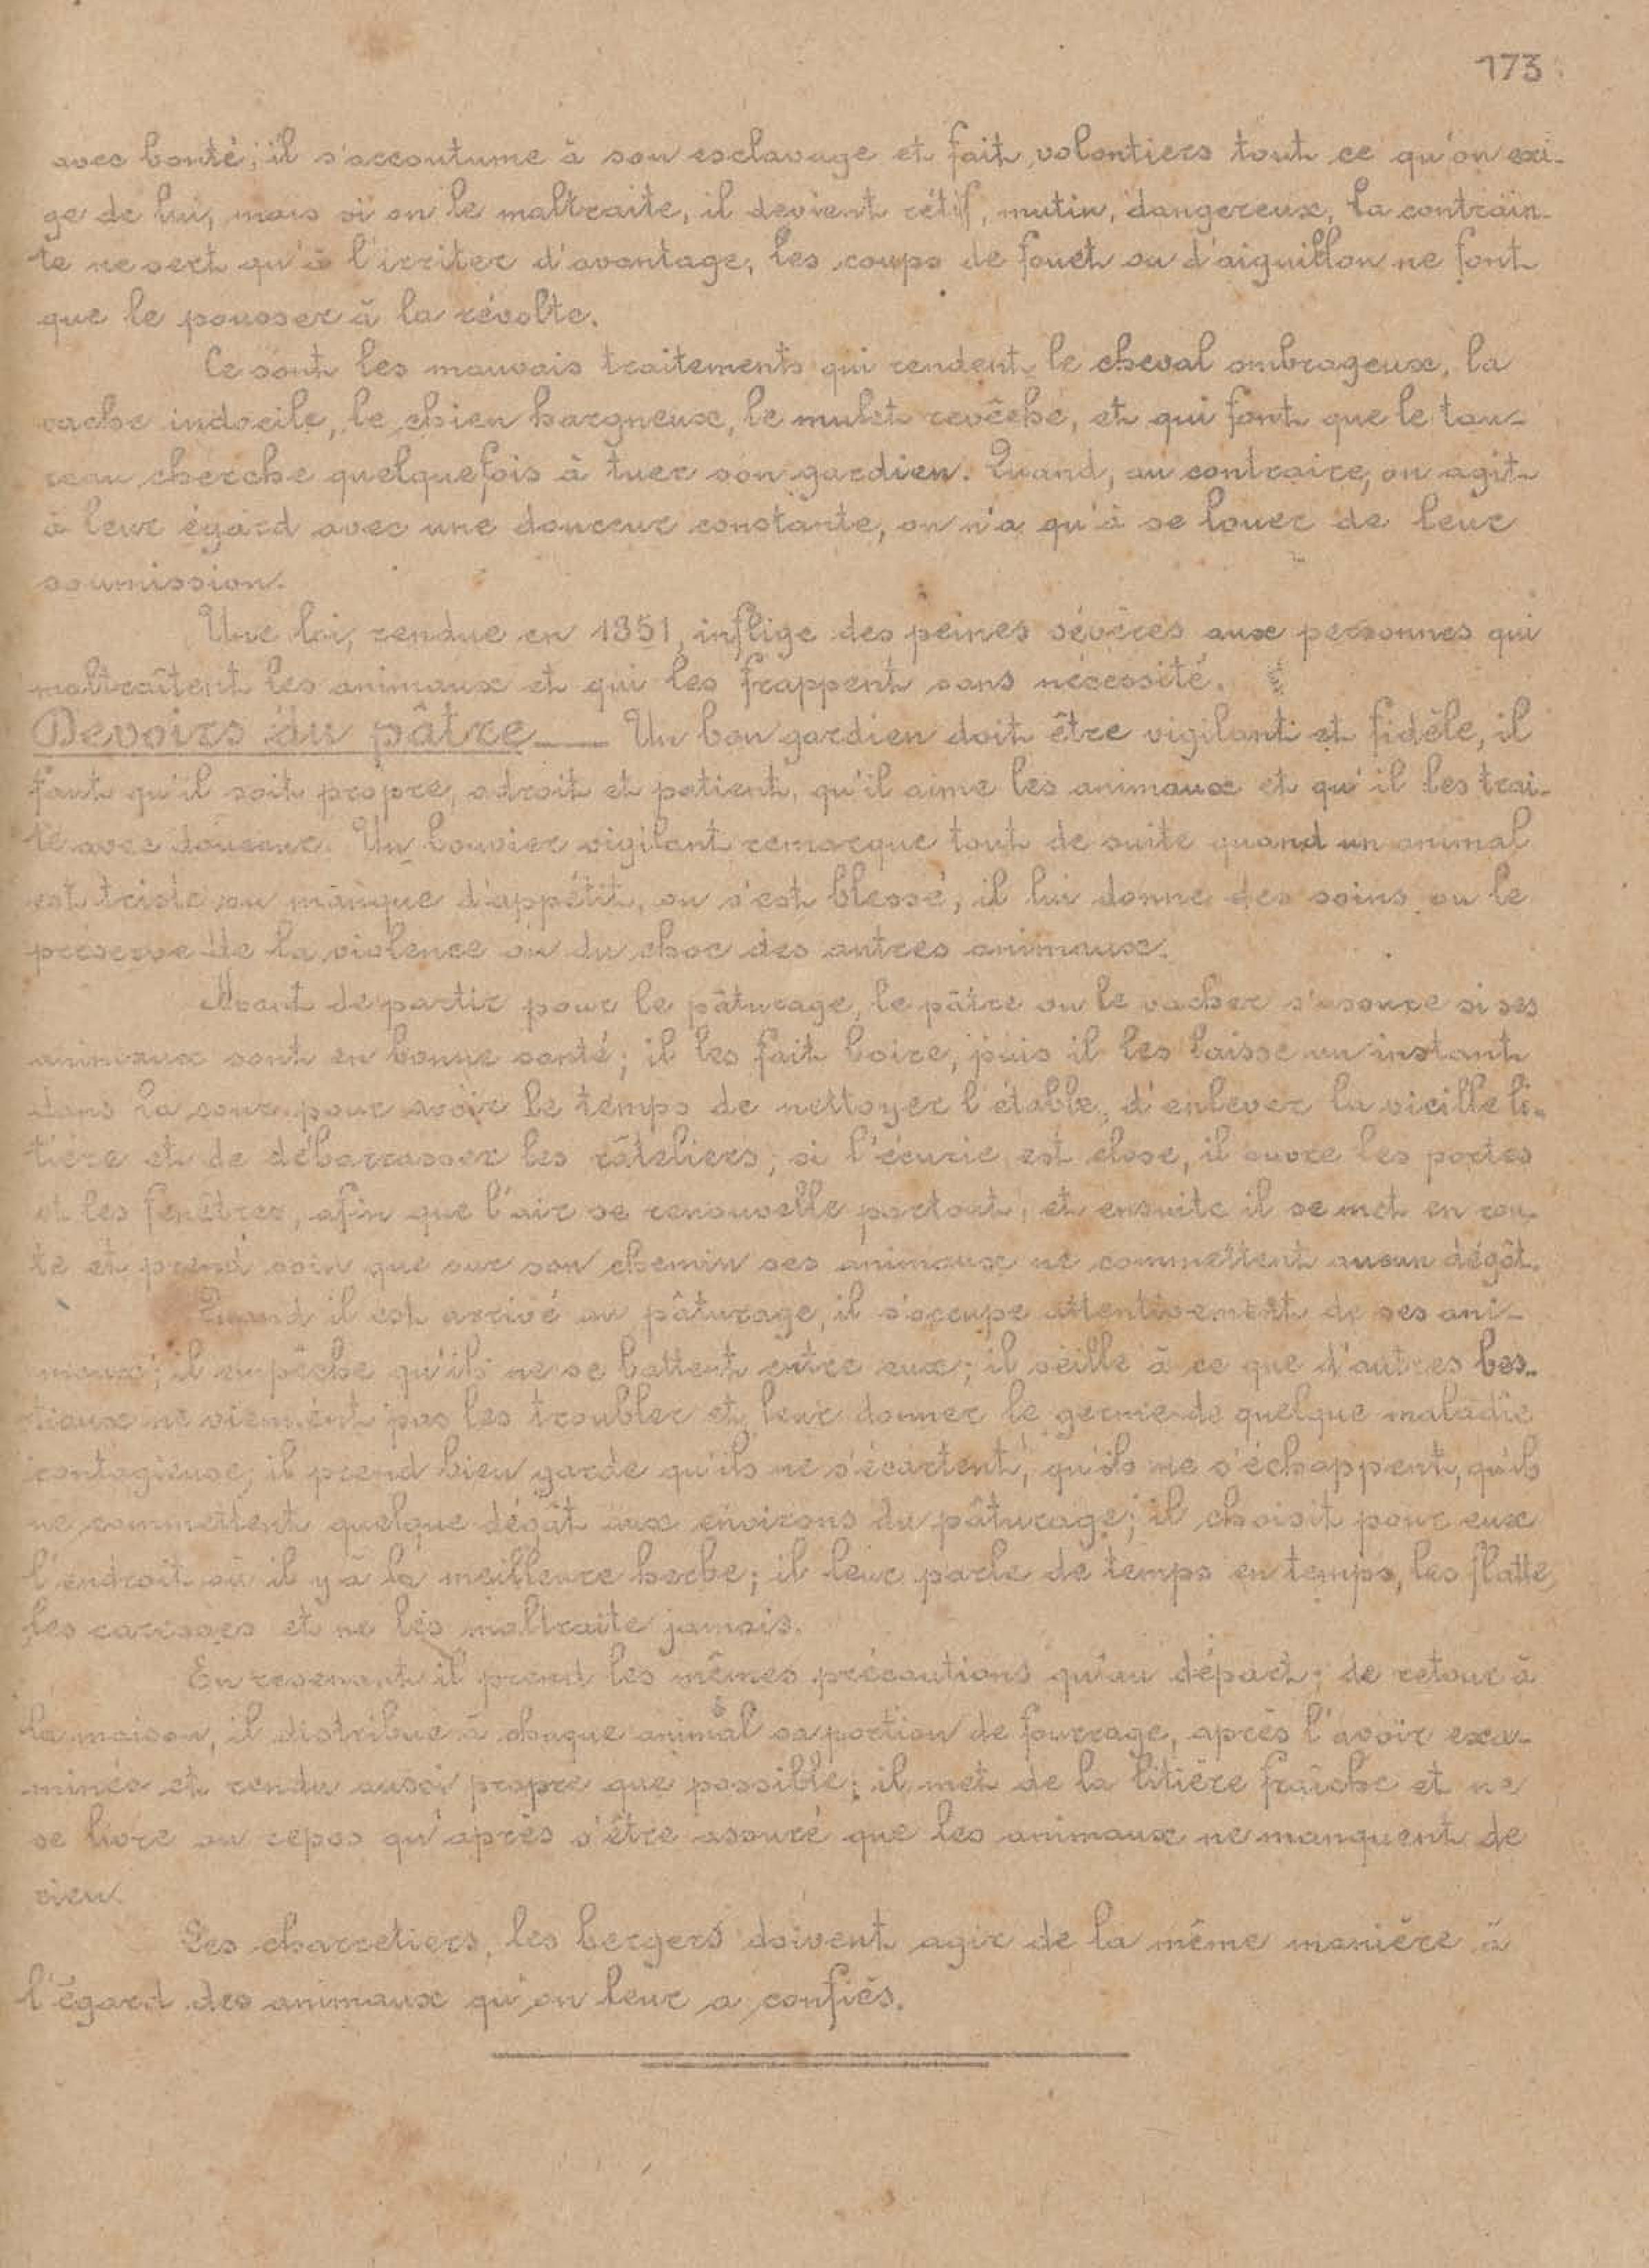 173
avec bonté; il s'accoutume à son esclavage et fait volontiers tout ce qu'on exi-
ge de lui, mais si on le maltraite, il devient rétif, mutin, dangereux, la contrain-
te ne sert qu'à l'irriter d'avantage, les coups de fouet ou d'aiguillon ne font
que le pousser à la révolte.
Ce sont les mauvais traitements qui rendent le cheval ombrageux, la
vache indocile, le chien hargneux, le mulet revêche, et qui font que le tau-
reau cherche quelquefois à tuer son gardien. Quand, au contraire, on agit
à leur égard avec une douceur constante, on n'a qu'à se louer de leur
soumission.
Une loi, rendue en 1851, inflige des peines sévères aux personnes qui
maltraîtent les animaux et qui les frappent sans nécessité.
Devoirs du pâtre — Un bon gardien doit être vigilant et fidèle, il
faut qu'il soit propre, adroit et patient, qu'il aime les animaux et qu'il les trai-
te avec douceur. Un bouvier vigilant remarque tout de suite quand un animal
est triste ou manque d'appétit, ou s'est blessé; il lui donne des soins ou le
préserve de la violence ou du choc des autres animaux.
Avant de partir pour le pâturage, le pâtre ou le vacher s'assure si ses
animaux sont en bonne santé; il les fait boire, puis il les laisse un instant
dans la cour pour avoir le temps de nettoyer l'étable, d'enlever la vieille li-
tière et de débarrasser les râteliers; si l'écurie est close, il ouvre les portes
et les fenêtres, afin que l'air se renouvelle partout; et ensuite il se met en rou-
te et prend soin que sur son chemin ses animaux ne commettent aucun dégât.
Quand il est arrivé au pâturage, il s'occupe attentivement de ses ani-
maux; il empêche qu'ils ne se battent entre eux; il veille à ce que d'autres bes-
tiaux ne viennent pas les troubler et leur donner le germe de quelque maladie
contagieuse; il prend bien garde qu'ils ne s'écartent, qu'ils ne s'échappent, qu'ils
ne commettent quelque dégât aux environs du pâturage; il choisit pour eux
l'endroit où il y a la meilleure herbe; il leur parle de temps en temps, les flatte,
les caresses et ne les maltraite jamais.
En revenant il prend les mêmes précautions qu'au départ; de retour à
la maison, il distribue à chaque animal sa portion de fourrage, après l'avoir exa-
minés et rendu aussi propre que possible; il met de la litière fraîche et ne
se livre au repos qu'après s'être assuré que les animaux ne manquent de
rien.
Les charretiers, les bergers doivent agir de la même manière à
l'égard des animaux qu'on leur a confiés.